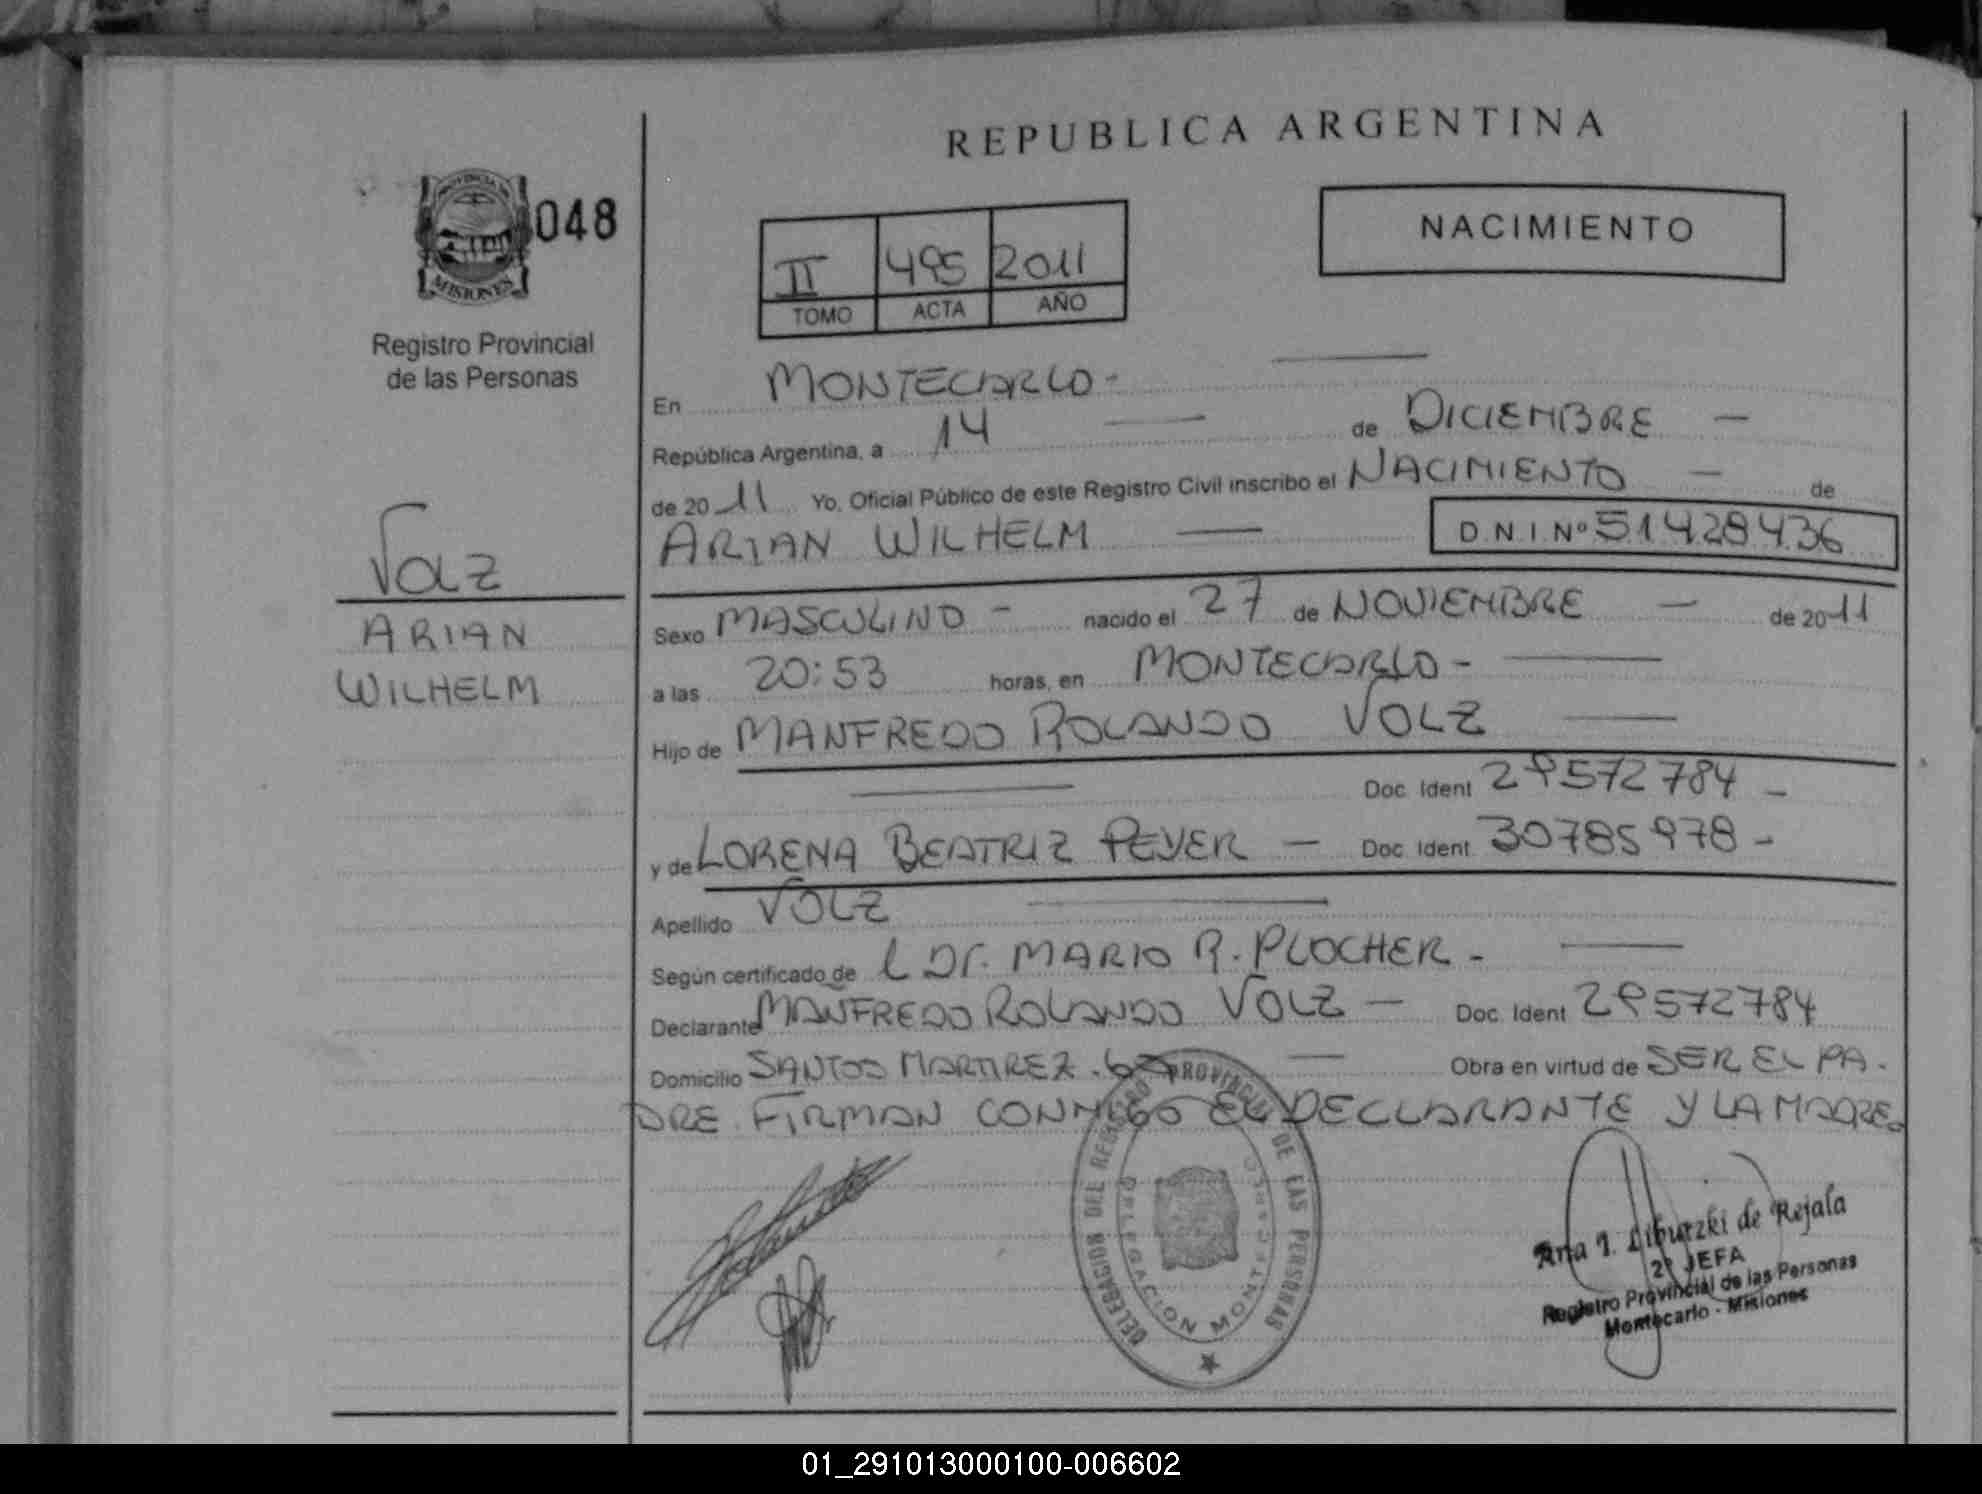 REPUBLICA ARGENTINA
PROVINCIA DE
MISIONES
048
Registro Provincial
de las Personas
II 495 2011
TOMO ACTA AÑO
NACIMIENTO
En MONTECARLO -
República Argentina, a 14 de DICIEMBRE —
de 2011 Yo, Oficial Público de este Registro Civil inscribo el NACIMIENTO — de
ARIAN WILHELM — D.N.I.Nº 51428436
VOLZ
ARIAN
WILHELM
Sexo MASCULINO - nacido el 27 de NOVIEMBRE — de 2011
a las 20:53 horas, en MONTECARLO -
Hijo de MANFREDO ROLANDO VOLZ —
Doc. Ident 29572784 -
y de LORENA BEATRIZ PEYER — Doc. Ident. 30785978 -
Apellido VOLZ
Según certificado de L Dr. MARIO R. PLOCHER. -
Declarante MANFREDO ROLANDO VOLZ — Doc. Ident 29572784
Domicilio SANTOS MARTIREZ. — Obra en virtud de SER EL PA-
DRE. FIRMAN CONMIGO EL DECLARANTE Y LA MADRE.
DELEGACION DEL REGISTRO PROVINCIAL DE LAS PERSONAS
DELEGACION MONTECARLO
Ana I. Liburzki de Rejala
2º JEFA
Registro Provincial de las Personas
Montecarlo - Misiones
01_291013000100-006602